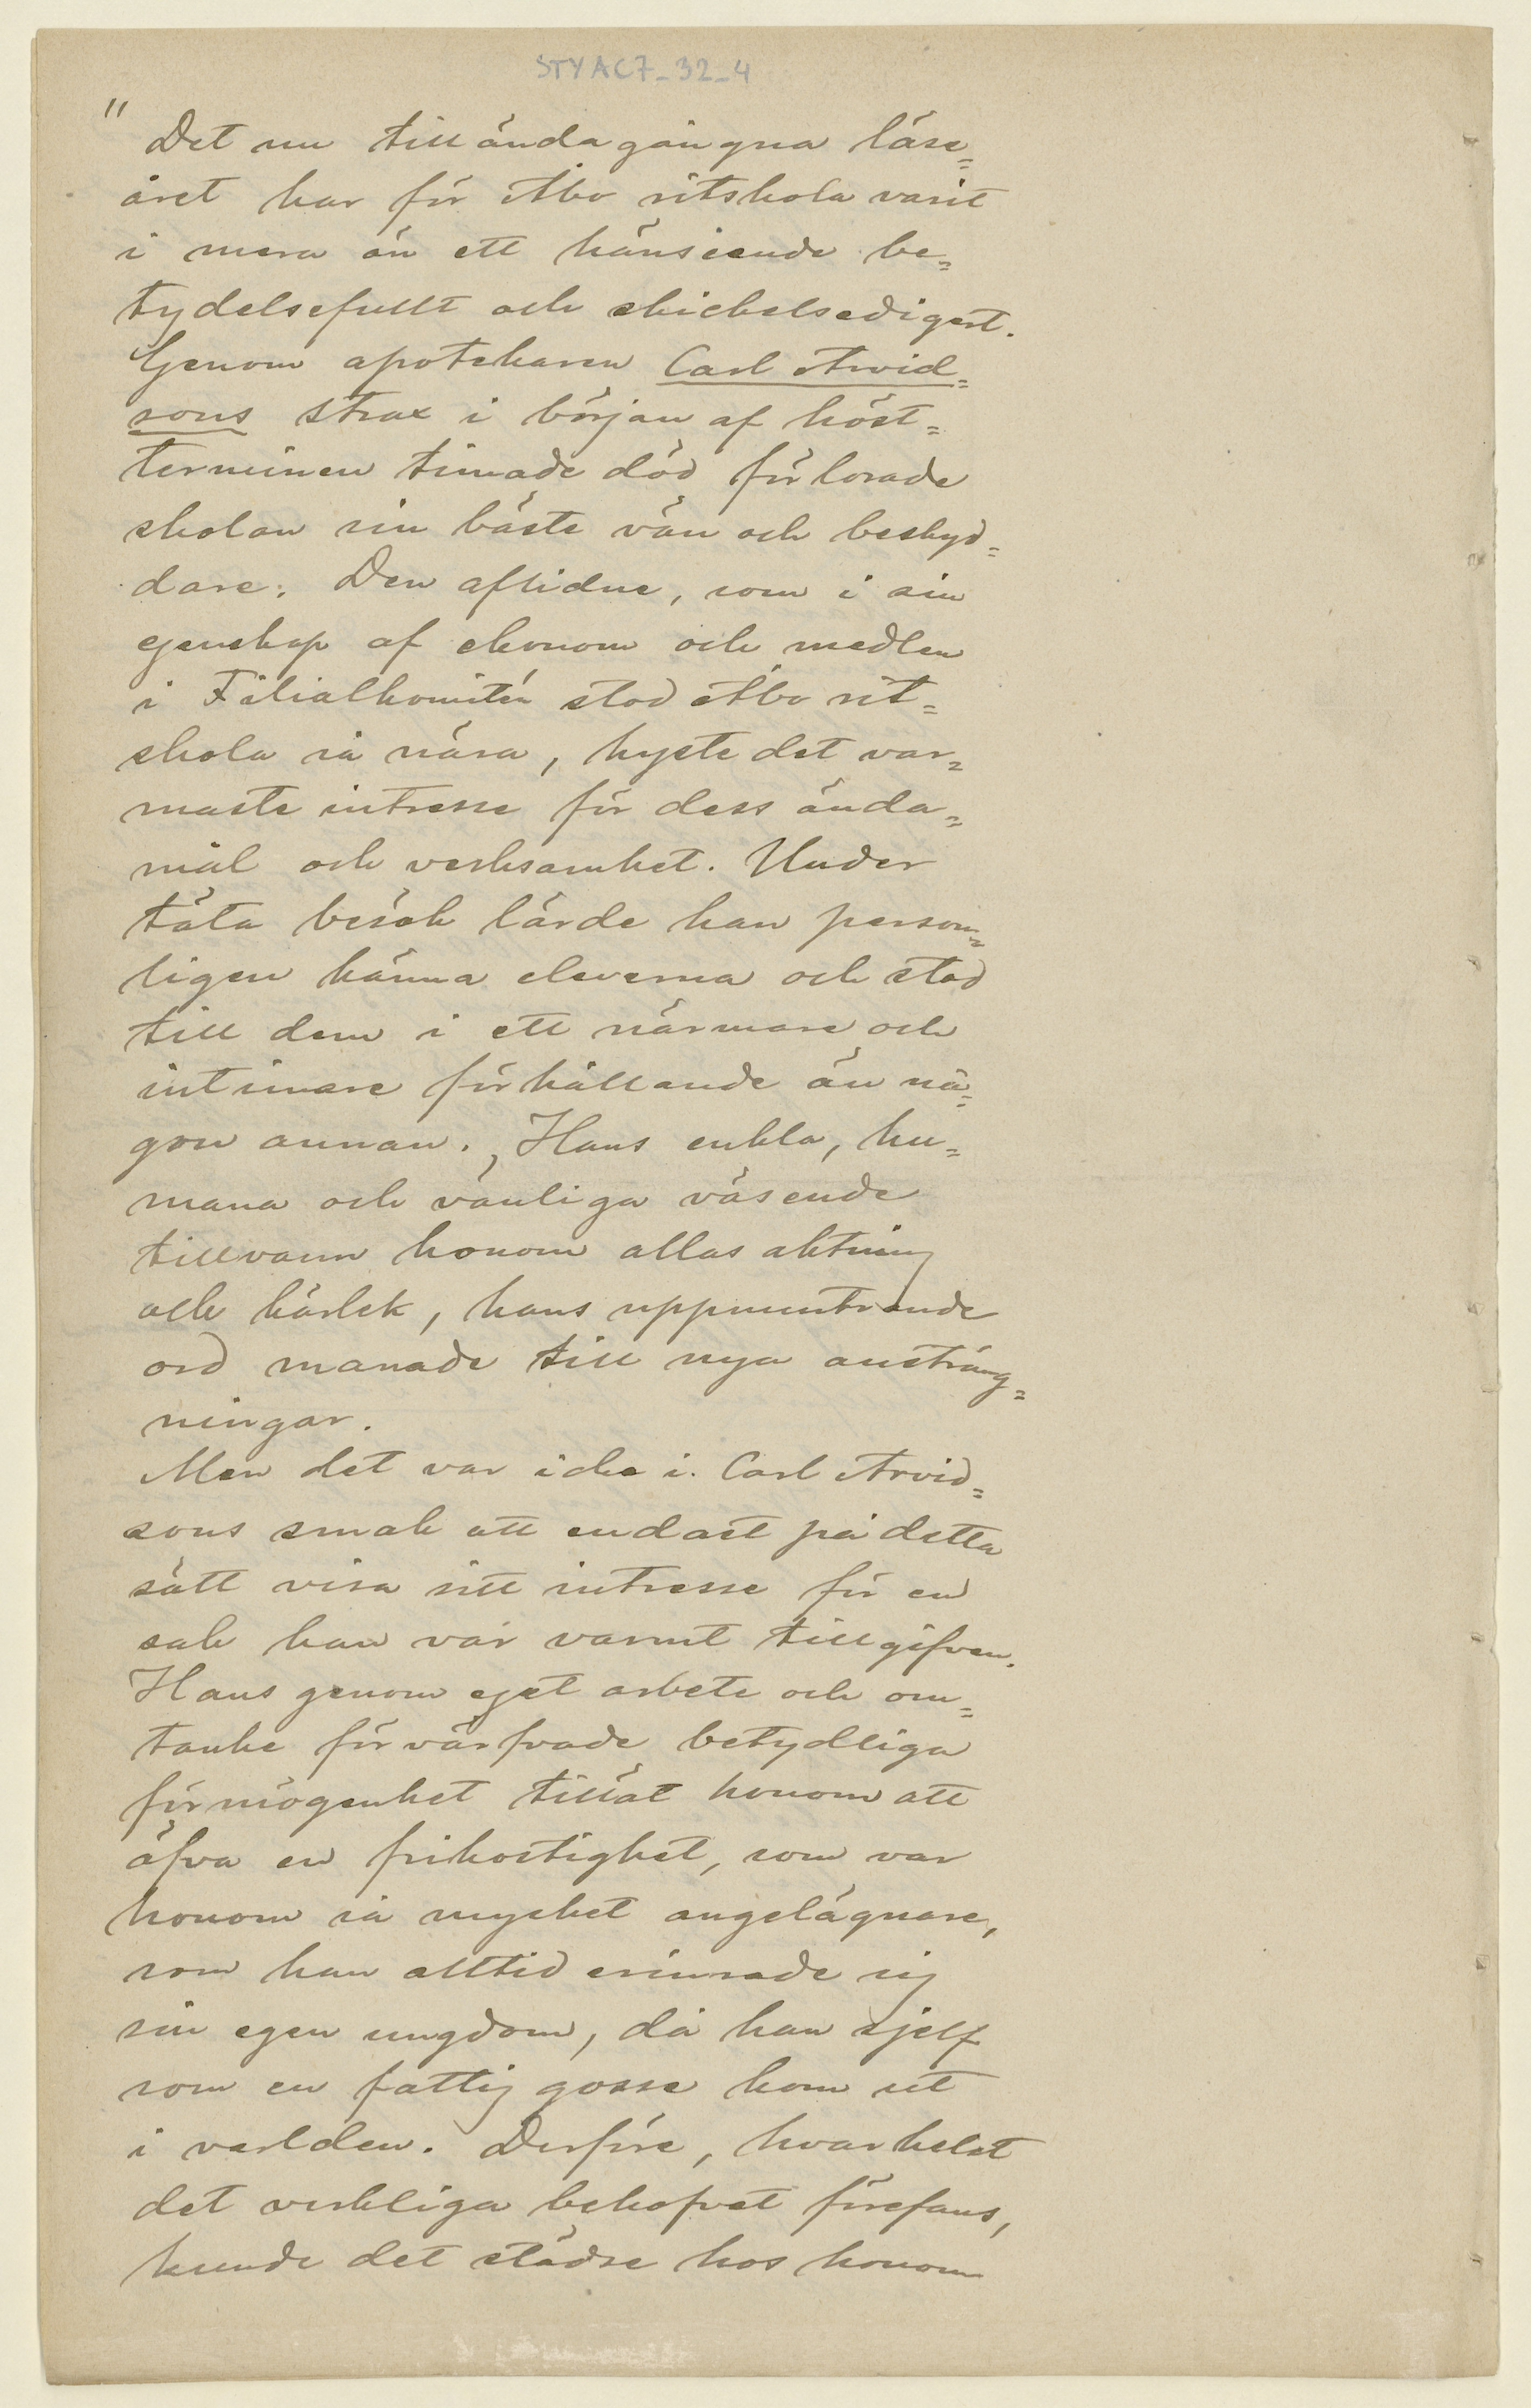 STYAC7_32_4
" Det nu till ända gångna läse=
året har för Åbo ritskola varit
i mera än ett hänseende be=
tydelsefullt och skickelsedigert.
Genom apotekaren Carl Arvid=
sons strax i början af höst=
terminen timade död förlorade
skolan sin bäste vän och beskyd=
dare. Den aflidne, som i sin
egenskap af ekonom och medlem
i Filialkomitén stod Åbo rit=
skola så nära, hyste det var=
maste intresse för dess ända=
mål och verksamhet. Under
täta besök lärde han person=
ligen känna eleverna och stod
till dem i ett närmare och
intimare förhållande än nå=
gon annan. Hans enkla, hu=
mana och vänliga väsende
tillvann honom allas aktning
och kärlek, hans uppmuntrande
ord manade till nya ansträng=
ningar.
Men det var icke i Carl Arvid=
sons smak att endast på detta
sätt visa sitt intresse för en
sak han var varmt tillgifven.
Hans genom eget arbete och om=
tanke förvärfvade betydliga
förmögenhet tillät honom att
öfva en frikostighet, som var
honom så mycket angelägnare,
som han alltid erinrade sig
sin egen ungdom, då han sjelf
som en fattig gosse kom ut
i verlden. Derföre, hvarhelst
det verkliga behofvet förefans,
kunde det städse hos honom